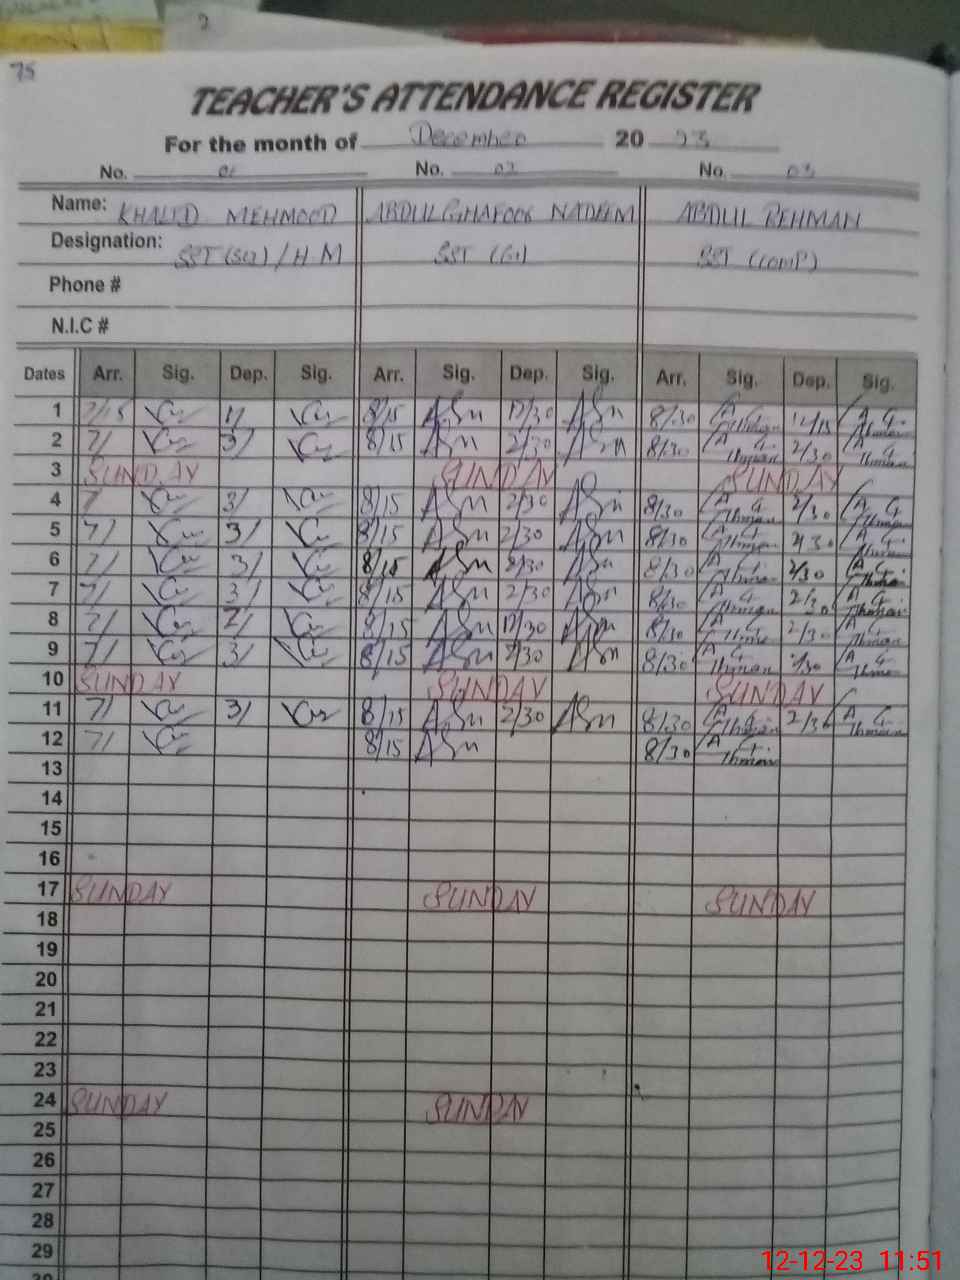 75
TEACHER'S ATTENDANCE REGISTER
For the month of December 20 23
No. 01 No. 02 No. 03
Name: KHALID MEHMOOD ABDUL GHAFOOR NADEEM ABDUL REHMAN
Designation: SST (Sci) / H.M SST (G) SST (COMP)
Phone #
N.I.C #
Dates Arr. Sig. Dep. Sig. Arr. Sig. Dep. Sig. Arr. Sig. Dep. Sig.
1 7/15 1/ 8/15 12/30 8/30 12/15
2 7/ 3/ 8/15 2/30 8/30 2/30
3 SUNDAY SUNDAY SUNDAY
4 7/ 3/ 8/15 2/30 8/30 2/30
5 7/ 3/ 8/15 2/30 8/30 2/30
6 7/ 3/ 8/15 2/30 8/30 2/30
7 7/ 3/ 8/15 2/30 8/30 2/30
8 7/ 2/ 8/15 12/30 8/30 2/30
9 7/ 3/ 8/15 2/30 8/30 2/30
10 SUNDAY SUNDAY SUNDAY
11 7/ 3/ 8/15 2/30 8/30 2/30
12 7/ 8/15 8/30
13
14
15
16
17 SUNDAY SUNDAY SUNDAY
18
19
20
21
22
23
24 SUNDAY SUNDAY
25
26
27
28
29
30
12-12-23 11:51